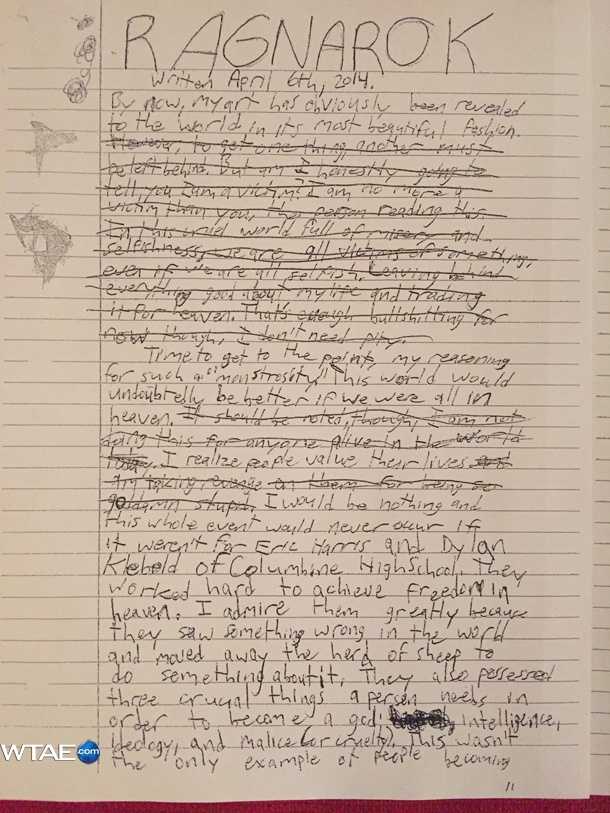 RAGNAROK
Writen April 6th, 2014.
By now, my art has obviously been revealed
to the world, in its most beautiful fashion.
However, to get one thing, another must
be left behind. But am I honestly going to
tell you I am a victim? I am no more a
victim than you, the person reading this.
In this cruel world full of misery and
selfishness, we are all victims of something,
even if we are all selfish. Leaving behind
everything good about my life and trading
it for heaven. That's enough bullshitting for
now though, I don't need pity.
Time to get to the point, my reasoning
for such a "monstrosity." This world would
undoubtelly be better if we were all in
heaven. It should be noted, though, I am not
doing this for anyone alive in the world
today. I realize people value their lives and
am taking revenge on them for being so
goddamn stupid. I would be nothing and
this whole event would never occur if
it weren't for Eric Harris and Dylan
Klebold of Columbine High School. They
worked hard to achieve freedom in
heaven. I admire them greatly because
they saw something wrong in the world
and moved away the herd of sheep to
do something about it. They also possessed
three crucial things a person needs in
order to become a god, intelligence,
ideology, and malice (or cruelty). This wasn't
the only example of people becoming
11
WTAE.com